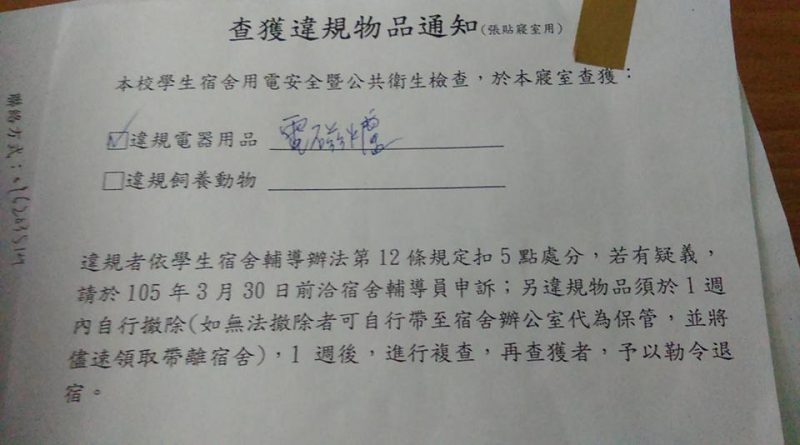 查獲違規物品通知(張貼寢室用)
本校學生宿舍用電安全暨公共衛生檢查，於本寢室查獲：
☑違規電器用品 電磁爐
□違規飼養動物
違規者依學生宿舍輔導辦法第 12 條規定扣 5 點處分，若有疑義，
請於 105 年 3 月 30 日前洽宿舍輔導員申訴；另違規物品須於 1 週
內自行撤除(如無法撤除者可自行帶至宿舍辦公室代為保管，並將
儘速領取帶離宿舍)，1 週後，進行複查，再查獲者，予以勒令退
宿。
聯絡方式：